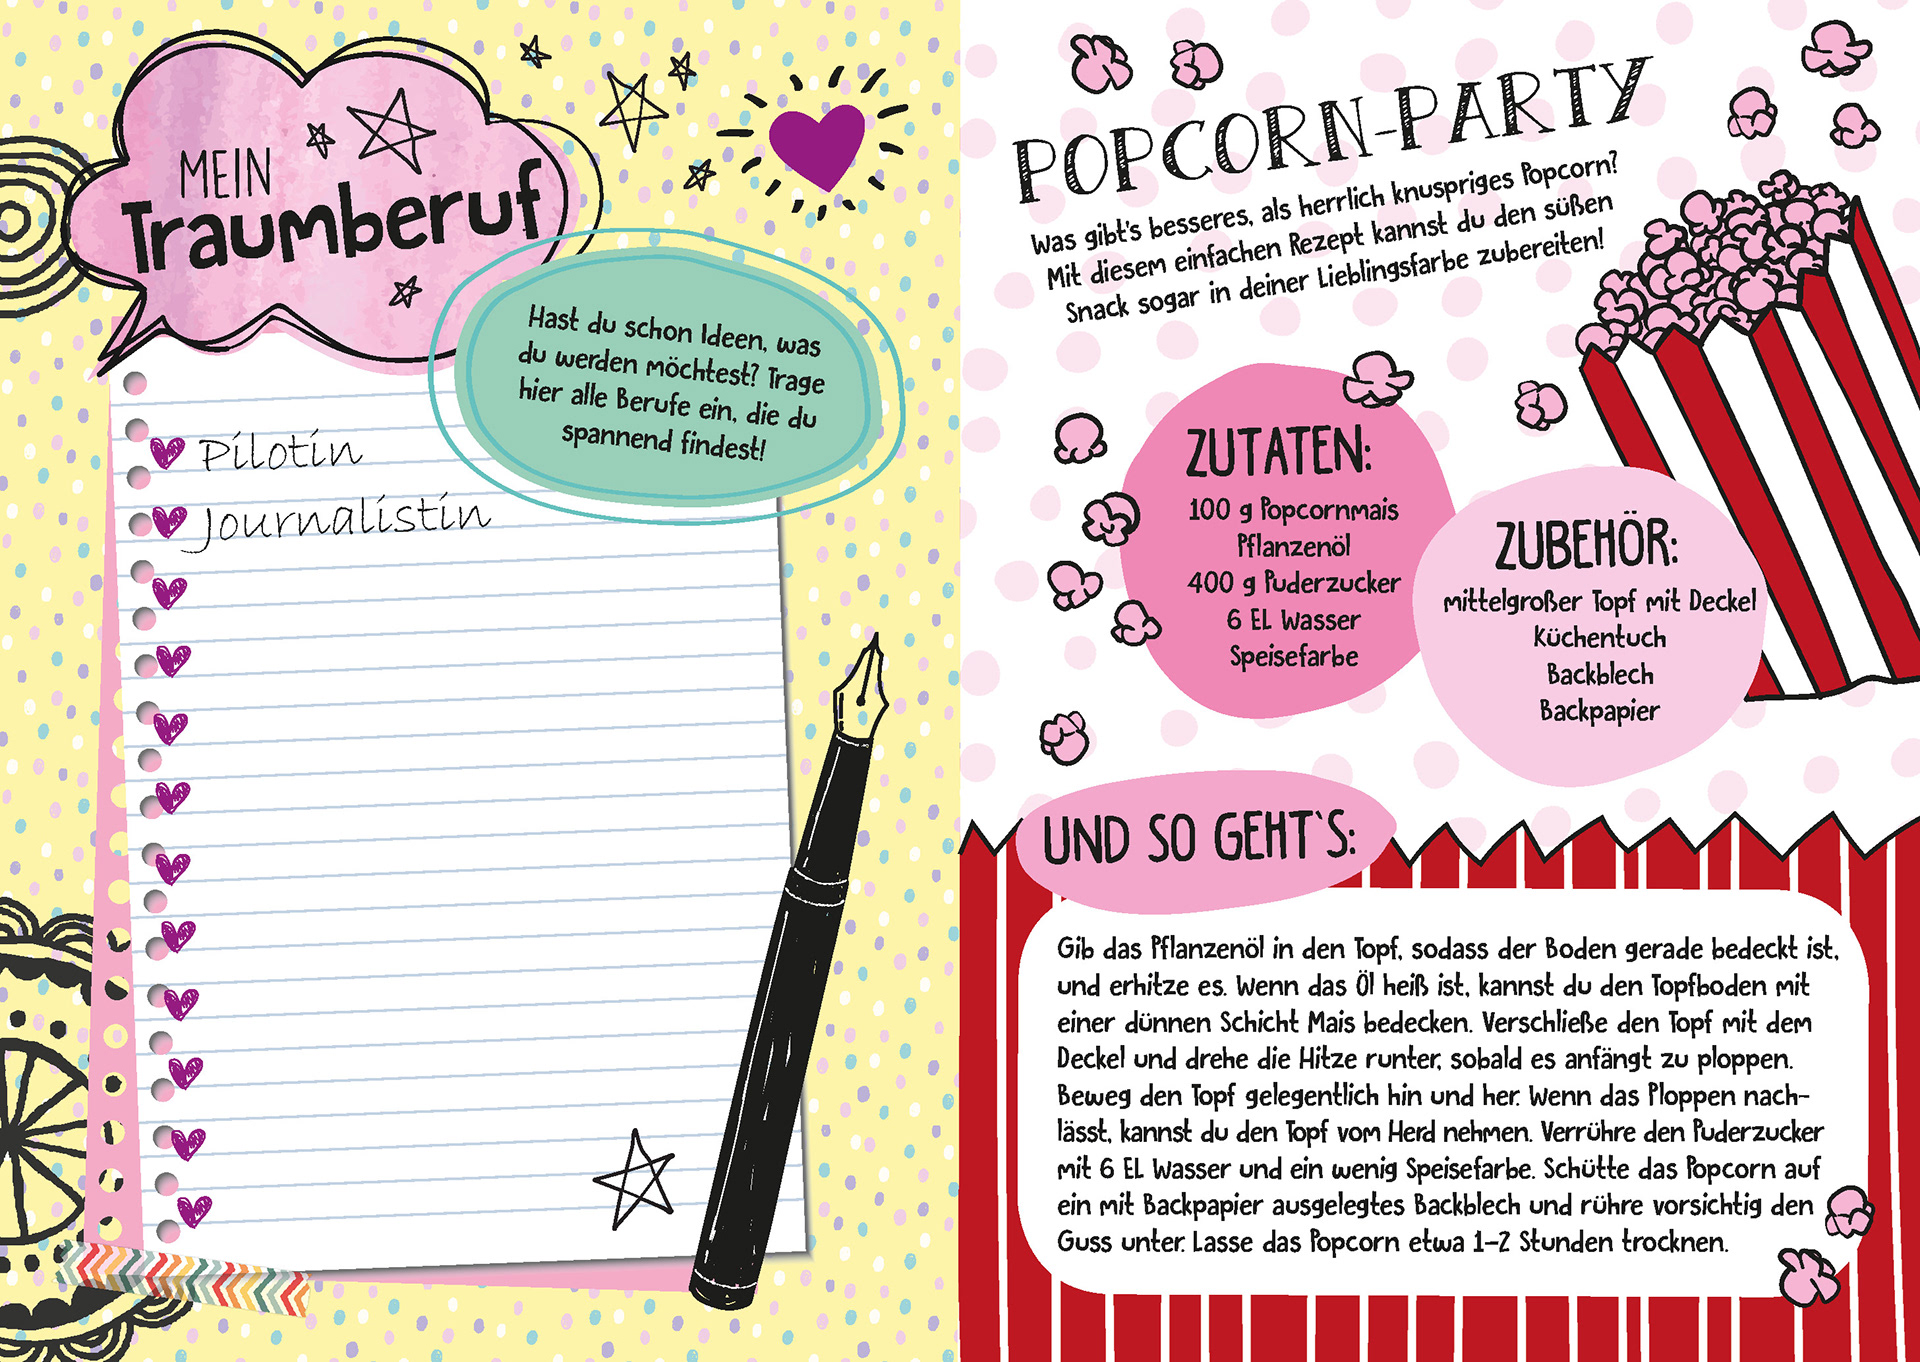 MEIN
Traumberuf
Hast du schon Ideen, was
du werden möchtest? Trage
hier alle Berufe ein, die du
spannend findest!
Pilotin
Journalistin
POPCORN-PARTY
Was gibt's besseres, als herrlich knuspriges Popcorn?
Mit diesem einfachen Rezept kannst du den süßen
Snack sogar in deiner Lieblingsfarbe zubereiten!
ZUTATEN:
100 g Popcornmais
Pflanzenöl
400 g Puderzucker
6 EL Wasser
Speisefarbe
ZUBEHÖR:
mittelgroßer Topf mit Deckel
Küchentuch
Backblech
Backpapier
UND SO GEHT`S:
Gib das Pflanzenöl in den Topf, sodass der Boden gerade bedeckt ist,
und erhitze es. Wenn das Öl heiß ist, kannst du den Topfboden mit
einer dünnen Schicht Mais bedecken. Verschließe den Topf mit dem
Deckel und drehe die Hitze runter, sobald es anfängt zu ploppen.
Beweg den Topf gelegentlich hin und her. Wenn das Ploppen nach-
lässt, kannst du den Topf vom Herd nehmen. Verrühre den Puderzucker
mit 6 EL Wasser und ein wenig Speisefarbe. Schütte das Popcorn auf
ein mit Backpapier ausgelegtes Backblech und rühre vorsichtig den
Guss unter. Lasse das Popcorn etwa 1-2 Stunden trocknen.